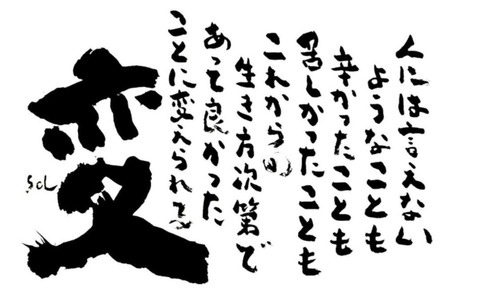 人には言えない
ようなことも
辛かったことも
苦しかったことも
これからの
生き方次第で
あって良かった
ことに変えられる
変
SOL